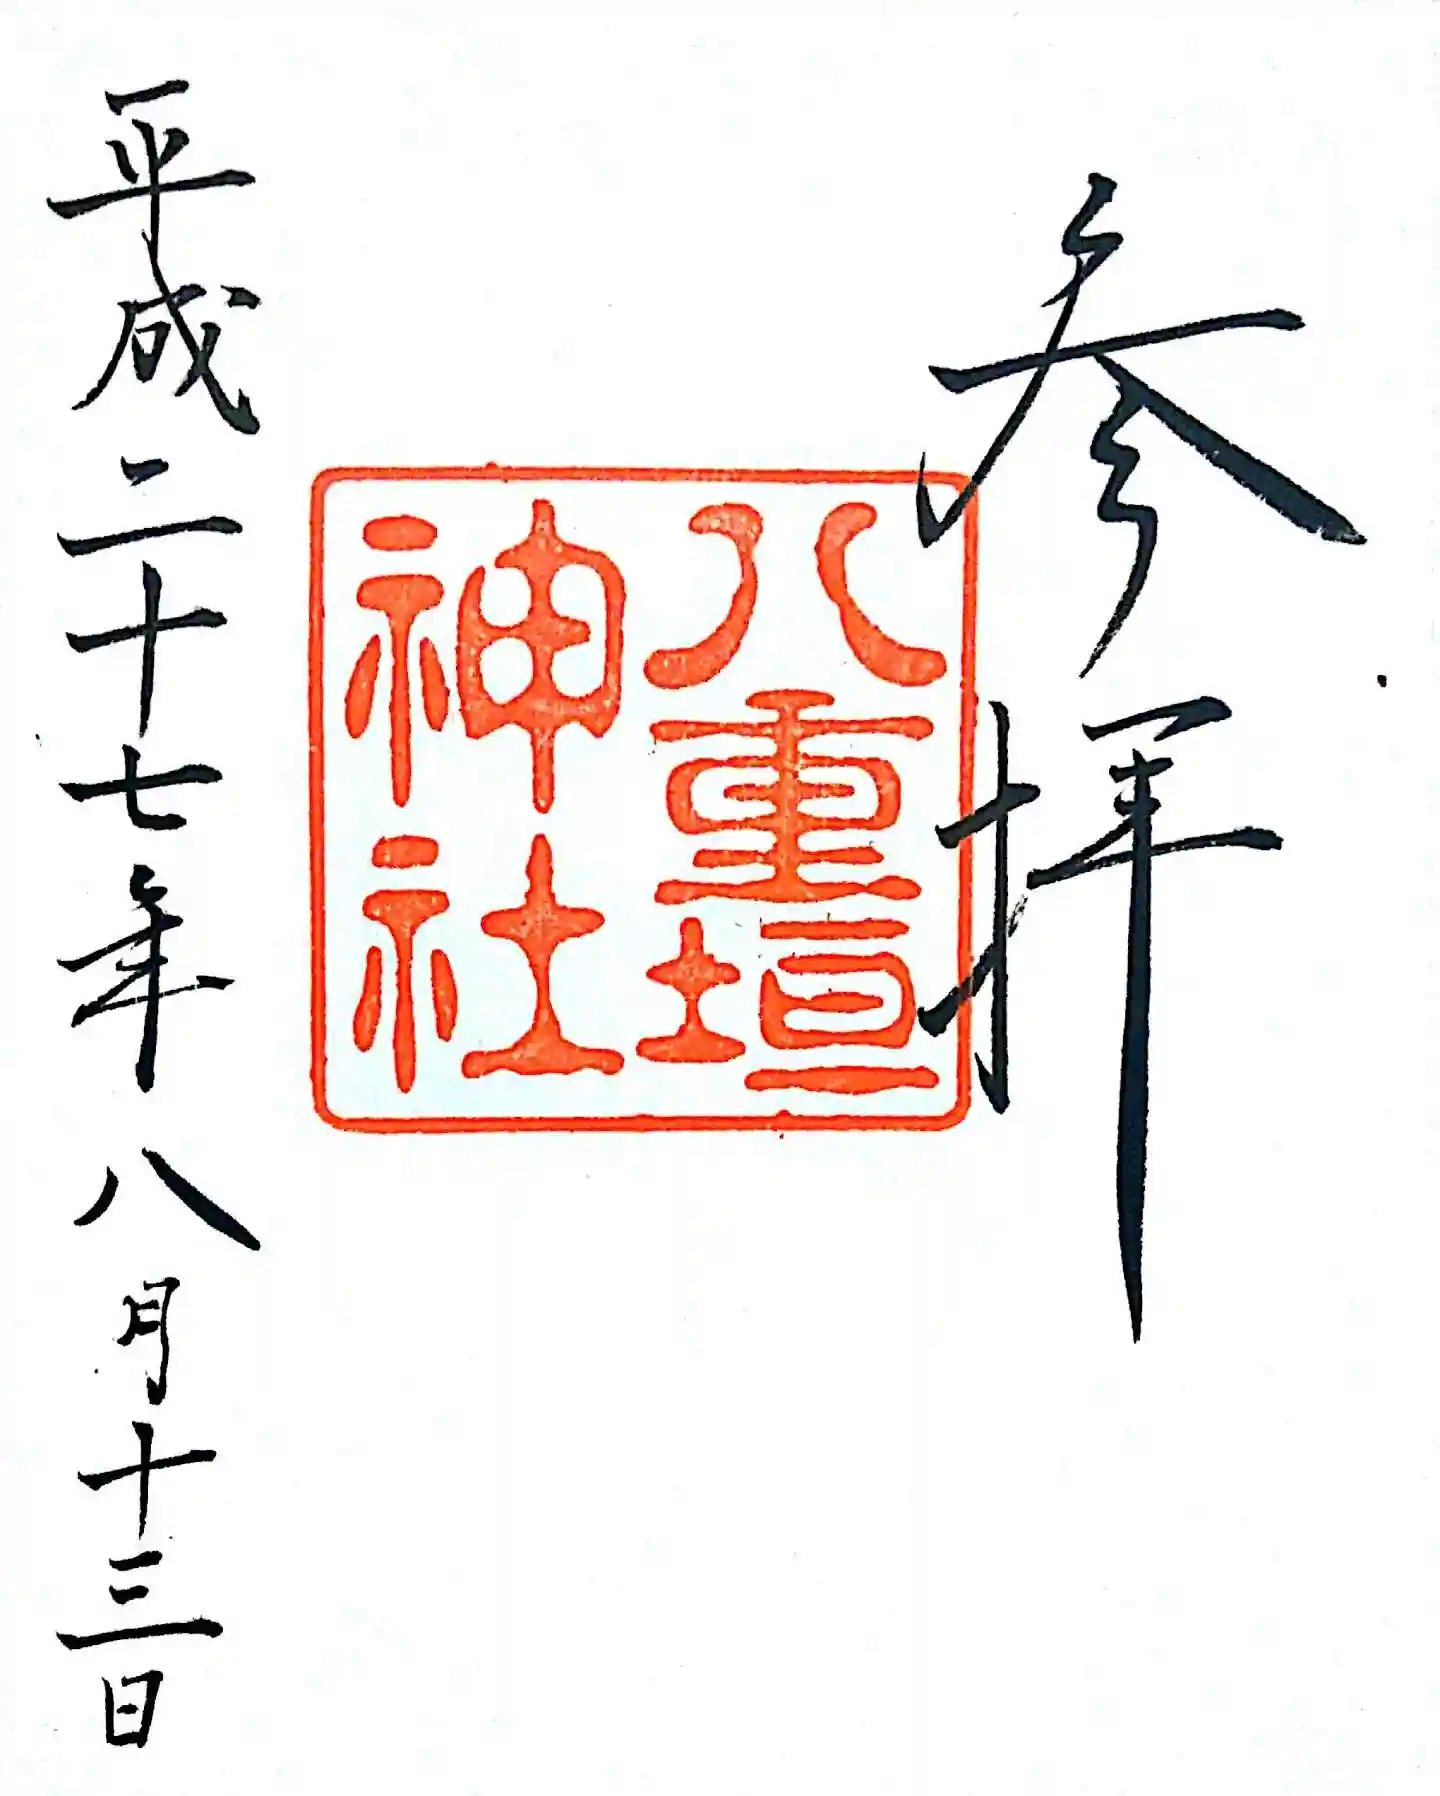 参拝
八重垣
神社
平成二十七年八月十三日